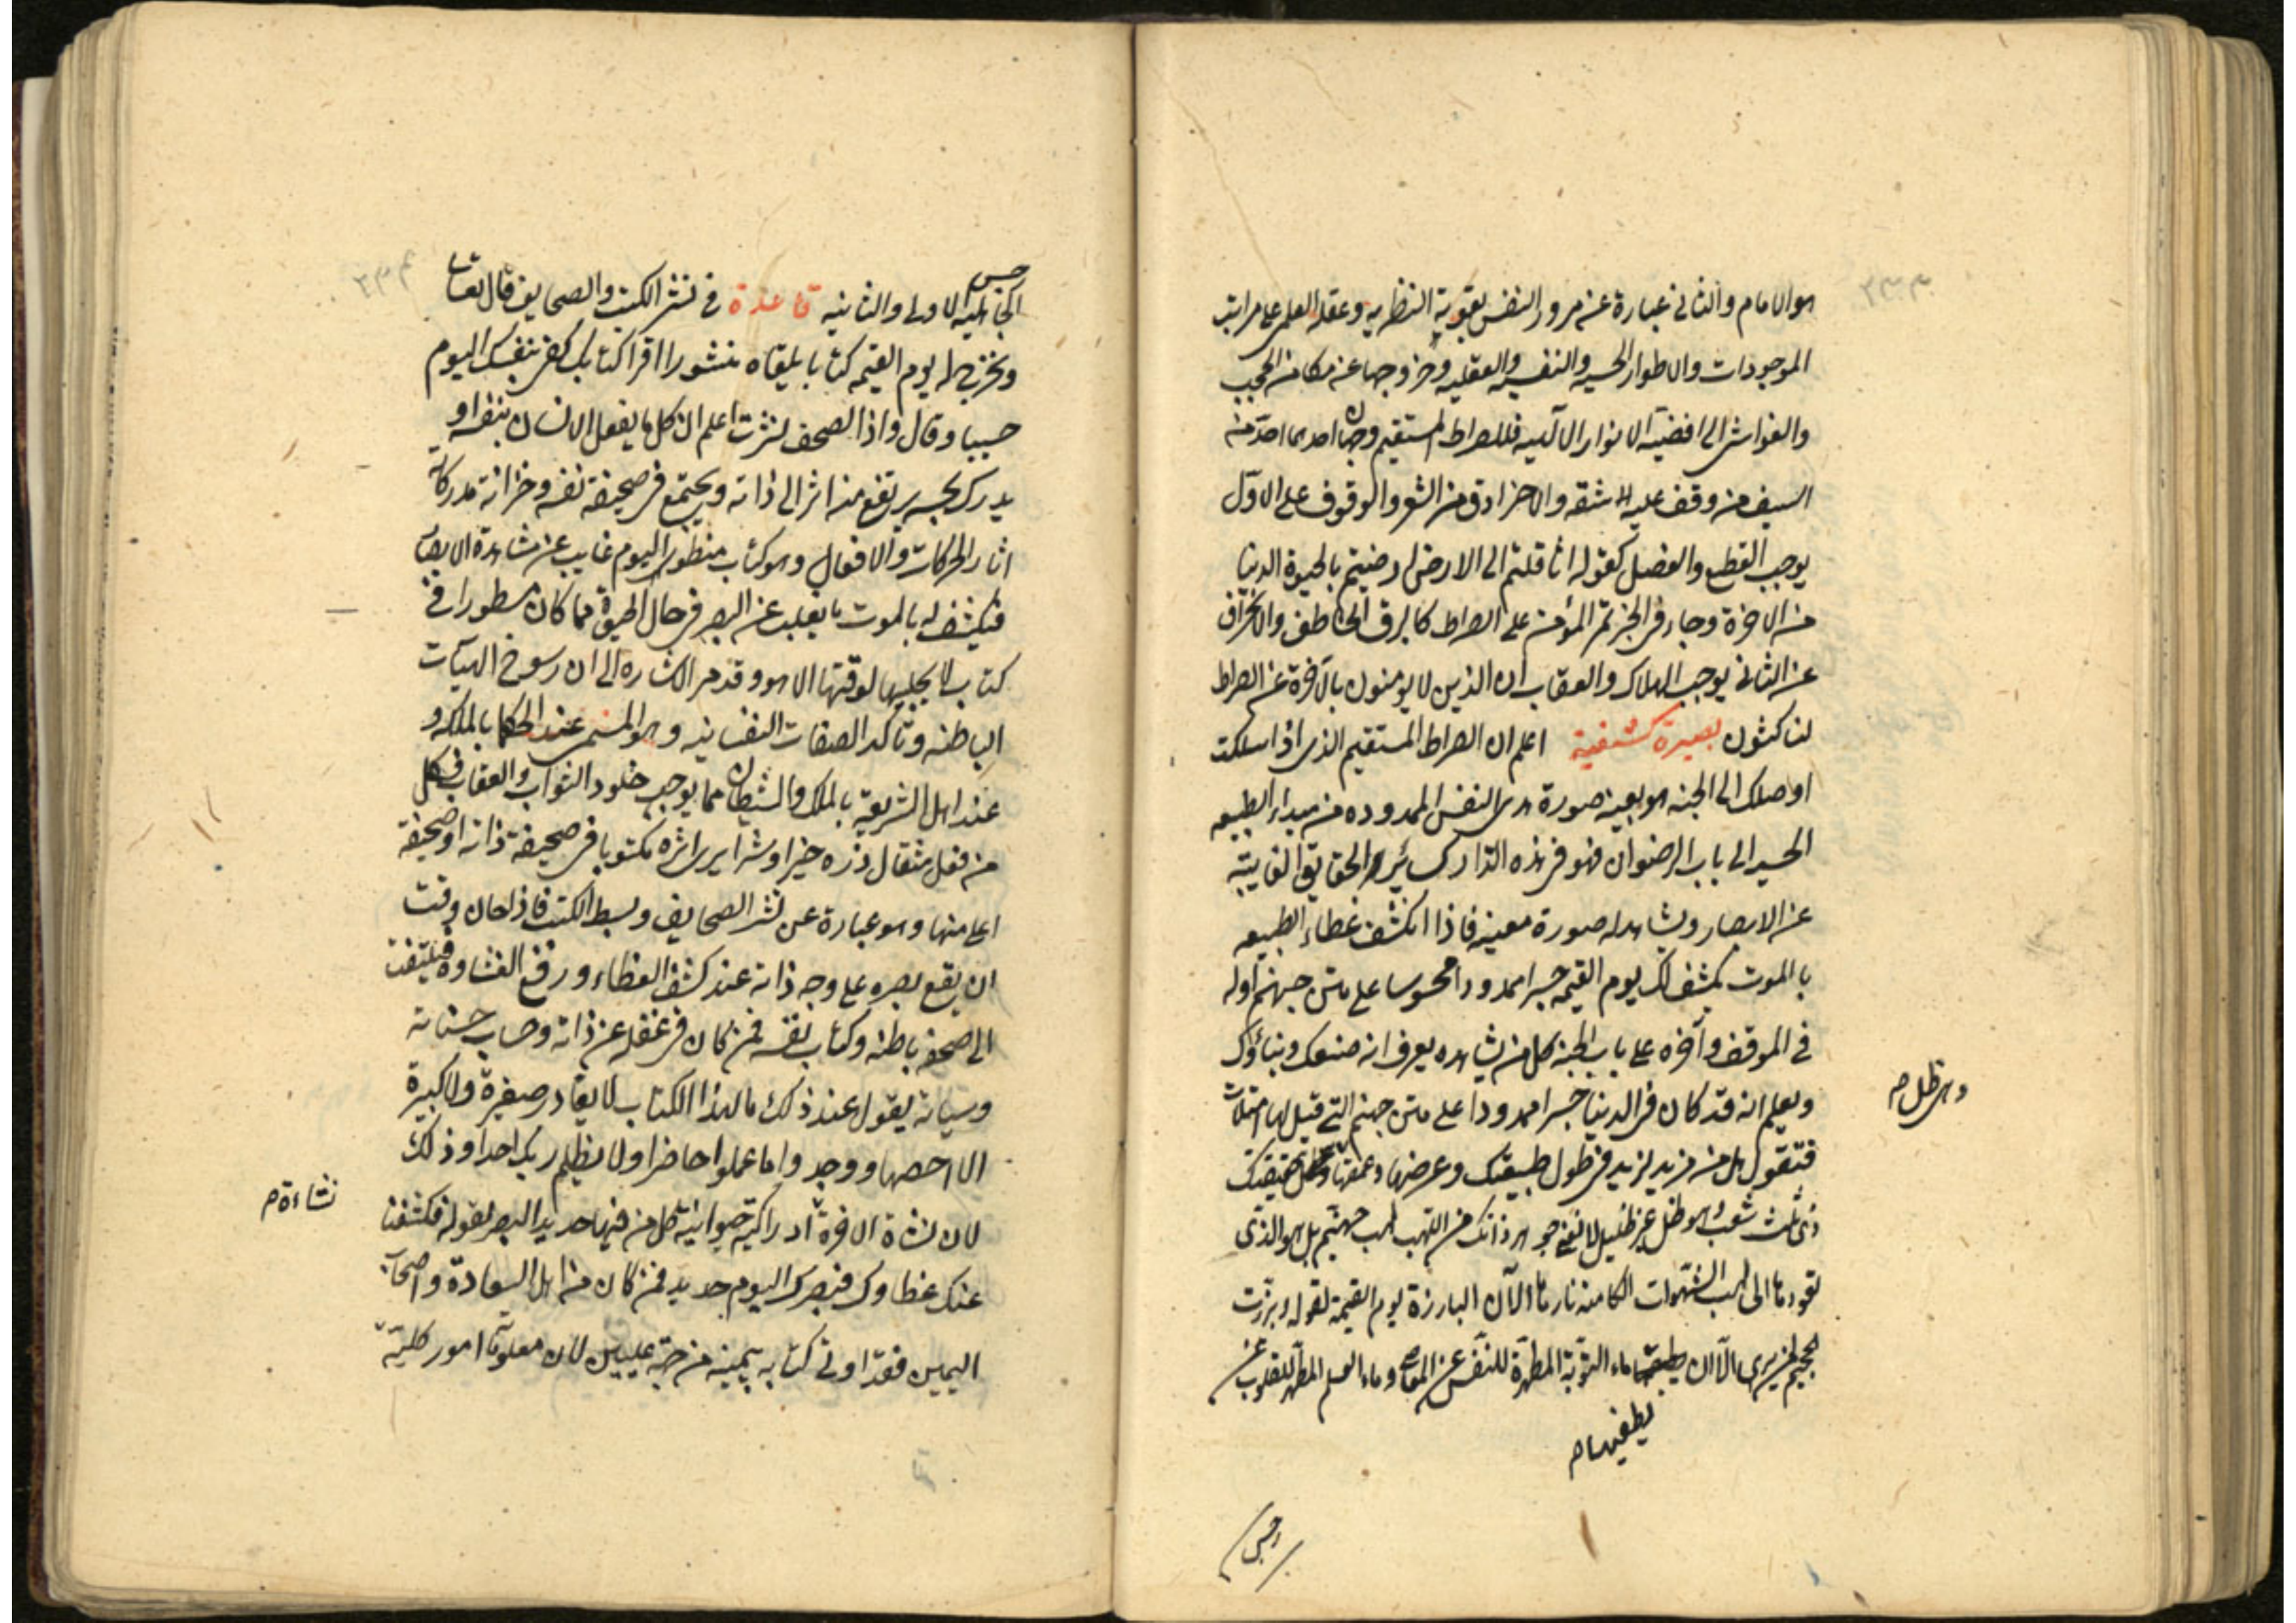 هو الامام والثاني عبارة عن مرور النفس بقوتيه النظريه وعقله العلمي على مراتب
الموجودات والاطوار الحسيه والنفسيه والعقليه وخروجها عن مكامن الحجب
والغواشى الى افضيه الانوار الالهيه فللصراط المستقيم وجهان احدهما احدّ من
السيف من وقف عليه شقه والاخر ادق من الشعر والوقوف على الاول
يوجب القطع والفصل كقوله اثاقلتم الى الارض ارضيتم بالحيوة الدنيا
من الاخرة وجاء فى الخبر تمرّ المؤمن على الصراط كالبرق الخاطف والانحراف
عن الثانى يوجب الهلاك والعقاب ان الذين لا يومنون بالآخرة عن الصراط
لناكثون بصيرة كشفية اعلم ان الصراط المستقيم الذى اذا سلكت
اوصلك الى الجنه هو بعينه صورة هدى النفس الممدوده من مبداء الطبيعه
الحسيه الى باب الرضوان فهو فى هذه الدار كسائر الحقايق الغايبة
عن الابصار ويشاهد له صورة معينه فاذا انكشف غطاء الطبيعه
بالموت يكشف لك يوم القيمه جسرا ممدودا محسوسا على متن جهنم اوله
فى الموقف وآخره على باب الجنه كل من يشاهده يعرف انه صنعك وبناؤك
ويعلم انه قد كان فى الدنيا جسرا ممدودا على متن جهنم التى قيل لها امتلات
فتقول هل من مزيد ليزيد فى طول طبيعتك وعرضها وعمقها حقيقتك
وهى ظل م
ذى ثلث شعب هو ظل غير ظليل لا يغنى جوهر ذاتك من اللهب لهب جهنم بل هو الذى
تقودها الى لهب الشهوات الكامنه نارها الآن البارزة يوم القيمة لقوله وبرزت
الجحيم لمن يرى الا ان ماء التوبة المطهرة للنفس عن المعاصى وماء العلم المطهر للقلوب عن
يطفيها م
رجس
رجس
الجاهليه الاولى والثانيه قاعدة فى نشر الكتب والصحايف قال تعالى
ونخرج له يوم القيمه كتابا يلقاه منشورا اقرا كتابك كفى بنفسك اليوم
حسيبا وقال واذا الصحف نشرت اعلم ان كل ما يفعل الانسان بنفسه او
يدركه بحسه يرتفع منه اثر الى ذاته ويجتمع فى صحيفة نفسه وخزانة مدركاته
اثار الحركات والافعال وهو كتاب منطوى اليوم غايب عن مشاهدة الابصار
فيكشف له بالموت ما يغيب عن البصر فى حال الحيوة مما كان مسطورا فى
كتاب لا يجليها لوقتها الا هو وقد مر الاشاره الى ان رسوخ الهيآت
الباطنه وتاكد الصفات النفسانيه وهو المسمى عند الحكما بالملكه و
عند اهل الشريعة بالملك والشيطان مما يوجب خلود الثواب والعقاب فكل
من فعل مثقال ذره خيرا او شرا يرى اثره مكتوبا فى صحيفة ذاته او صحيفة
اعلى منها وهو عبارة عن نشر الصحايف وبسط الكتب فاذا حان وقت
ان يقع بصره على وجه ذاته عند كشف الغطاء ورفع الغشاوه فيلتفت
الى صحيفة باطنه وكتاب نفسه فمن كان فى غفله عن ذاته وحساب حسناته
وسيئاته يقول عند ذلك ما لهذا الكتاب لا يغادر صغيرة ولا كبيرة
الا احصها ووجدوا ما عملوا حاضرا ولا يظلم ربك احدا وذلك
لان نشاة الاخرة ادراكية حيوانية كل من فيها حديد البصر لقوله فكشفنا
نشاءة م
عنك غطاوك فبصرك اليوم حديد فمن كان من اهل السعادة واصحاب
اليمين فقد اوتى كتابه بيمينه من جهة عليين لان معلوماته امور كلية